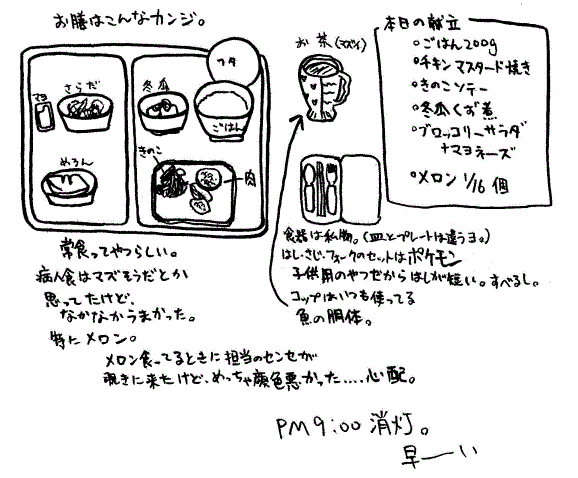 お膳はこんなカンジ。
フタ
マヨ
さらだ
冬瓜
ごはん
めろん
きのこ
肉
お茶(マズイ)
本日の献立
・ごはん200g
・チキンマスタード焼き
・きのこソテー
・冬瓜くず煮
・ブロッコリーサラダ
+マヨネーズ
・メロン 1/16個
常食ってやつらしい。
病人食はマズそうだとか
思ってたけど、
なかなかうまかった。
特にメロン。
メロン食ってるときに担当のセンセが
覗きに来たけど、めっちゃ顔色悪かった....心配。
食器は私物。(皿とプレートは違うヨ。)
はし・さじ・フォークのセットはポケモン
子供用のやつだからはしが短い。すべるし。
コップはいつも使ってる
魚の胴体。
PM9:00 消灯。
早ーい